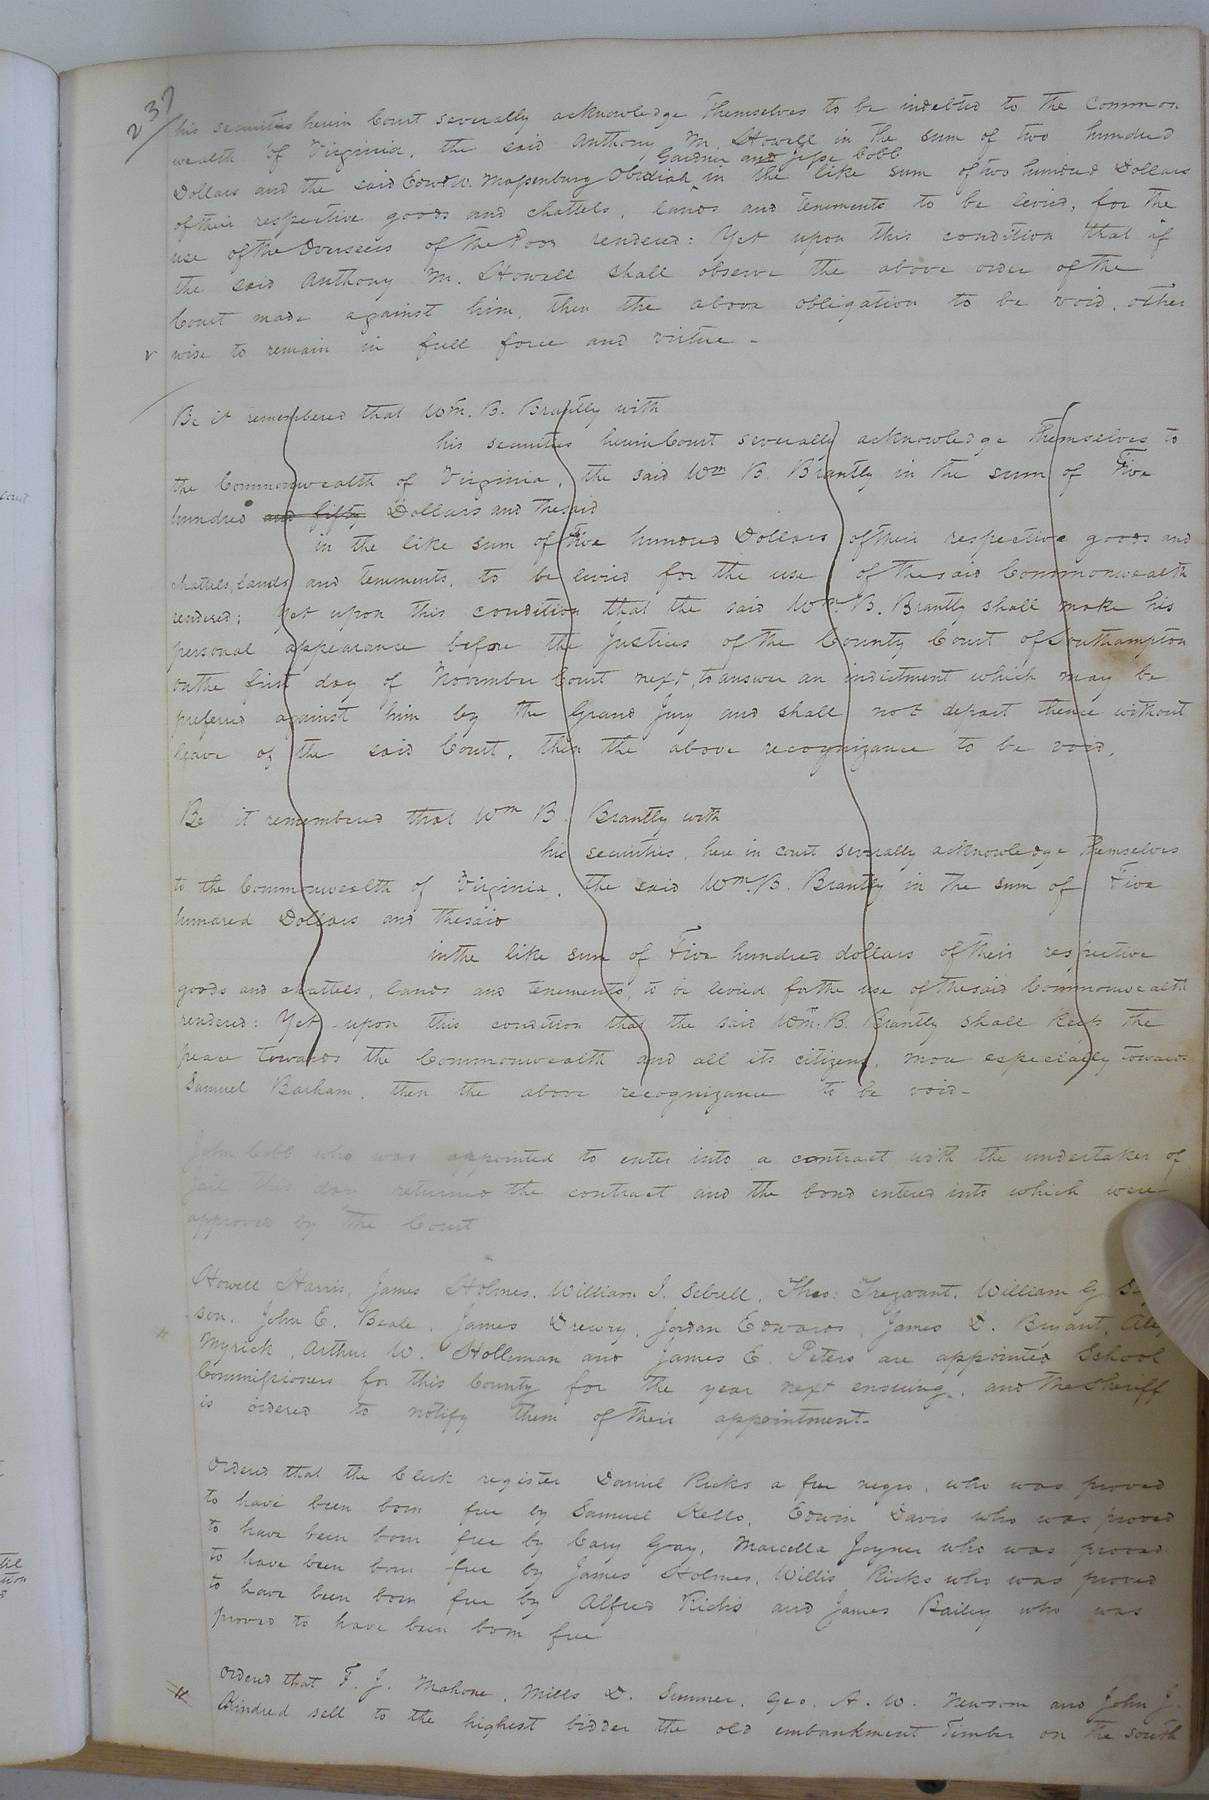 237
his securities herein Court severally acknowledge themselves to be indebted to the Common
wealth of Virginia, the said Anthony M. Howell in the sum of two hundred
Gardner and Jesse Cobb
Dollars and the said Edwd W. Massenburg Obediah ‸ in the like sum of two hundred Dollars
of their respective goods and chattels, lands and tenements to be levied, for the
use of the Overseers of the Poor rendered: Yet upon this condition that if
the said Anthony M. Howell shall observe the above order of the
Court made against him, then the above obligation to be void, other
wise to remain in full force and virtue -
Be it remembered that Wm. B. Brantly with
his securities herein Court severally acknowledge themselves to
the Commonwealth of Virginia, the said Wm B. Brantly in the sum of Five
hundred and fifty Dollars and the said
in the like sum of Five hundred Dollars of their respective goods and
chattels, lands and tenements, to be levied for the use of the said Commonwealth
rendered; Yet upon this condition that the said Wm. B. Brantly shall make his
personal appearance before the Justices of the County Court of Southampton
on the first day of November Court next, to answer an indictment which may be
prefered against him by the Grand Jury and shall not depart thence without
leave of the said Court, then the above recognizance to be void.
Be it remembered that Wm B. Brantly with
his securities, here in court severally acknowledge themselves
to the Commonwealth of Virginia, the said Wm. B. Brantly in the sum of Five
hundred Dollars and the said
in the like sum of Five hundred dollars of their respective
goods and chattels, lands and tenements, to be levied for the use of the said Commonwealth
rendered: Yet upon this condition that the said Wm. B. Brantly shall keep the
peace towards the Commonwealth and all its citizens, more especially towards
Samuel Barham, then the above recognizance to be void -
John Cobb who was appointed to enter into a contract with the undertaker of
Jail this day returned the contract and the bond entered into which were
approved by the Court
Howell Harris, James Holmes, William J. Sebrell, Theo: Trezvant, William G
son, John E. Beale, James Drewry, Jordan Edwards, James D. Bryant,
Myrick, Arthur W. Holleman and James E. Peters are appointed School
Commissioners for this County for the year next ensuing, and the Sheriff
is ordered to notify them of their appointment -
Ordered that the Clerk register Daniel Ricks a free negro, who was proved
to have been born free by Samuel Kello, Edwin Davis who was proved
to have been born free by Cary Gray, Marcella Joyner who was proved
to have been born free by James Holmes, Willis Ricks who was proved
to have been born free by Alfred Ricks and James Bailey who was
proved to have been born free
Ordered that F. J. Mahone, Mills D. Sumner, Geo. A. W. Newsom and John J.
Kindred sell to the highest bidder the old embankment Timber on the south